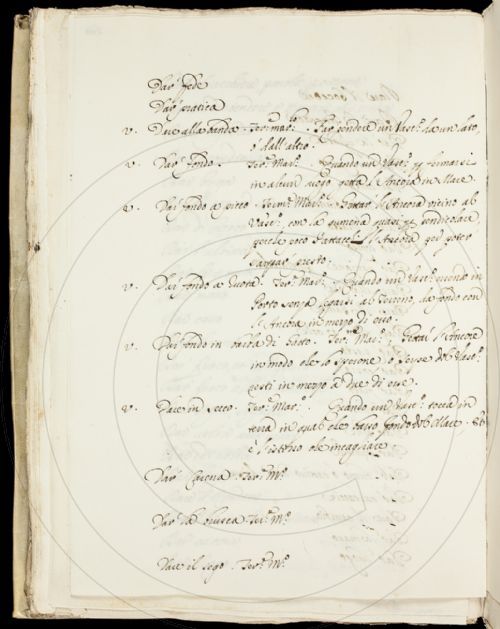 Dar fede
Dar pratica
v. Dare alla banda. Ter: mar:. Far pendere un Vasc: da un lato,
ò dall'altro.
v. Dar fondo. Ter: Mar:. Quando un Vasc: p fermarsi
in alcun luogo getta l'Ancora in Mare.
v. Dar fondo a picco. Term: Mar:. Gettar l'Ancora vicino al
Vasc: con la gumena quasi perpendicolare,
l'Ancora poter
Sarpar presto.
v. Dar fondo a Ruota. Ter: Mar:. Quando un Vasc: in
Porto senza al Terreno, da fondo con
l'Ancora in mezzo di esso.
v. Dar fondo in di. Ter: Mar:, l'Ancore
in modo che lo Sperone del Vasc:
resti in mezzo a due di esse.
v. Dare in secco. Ter: Mar:. Quando un Vasc: tocca in
terra in qualche basso fondo del Mare.
è l'istesso che incagliare
Dar Carena. Ter: M:
Dar la brusca. Ter: M:
Dare il sego. Ter: M: